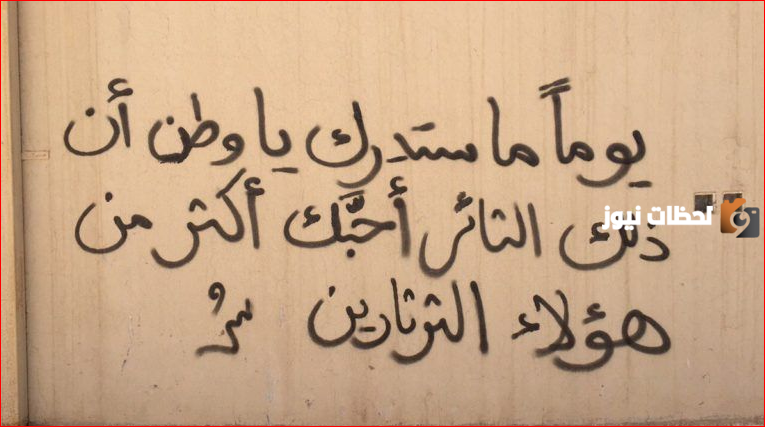 يوماً ما ستدرك يا وطن أن
ذلك الثائر أحبَّك أكثر من
هؤلاء الثرثارين
لحظات نيوز